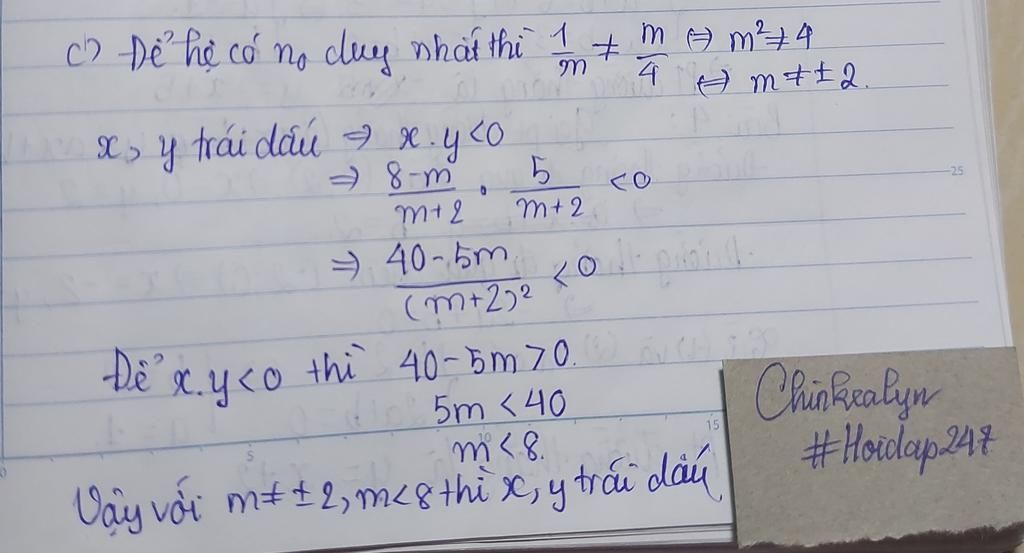 c) Để hệ có n₀ duy nhất thì 1/m ≠ m/4 ⇔ m² ≠ 4
⇔ m ≠ ± 2.
x, y trái dấu ⇒ x.y < 0
⇒ (8-m)/(m+2) . 5/(m+2) < 0
⇒ (40-5m)/(m+2)² < 0
Để x.y < 0 thì 40-5m > 0.
5m < 40
m < 8.
Vậy với m ≠ ± 2, m < 8 thì x, y trái dấu
Chinkealyn
#Hoidap247
25
15
5
10
0